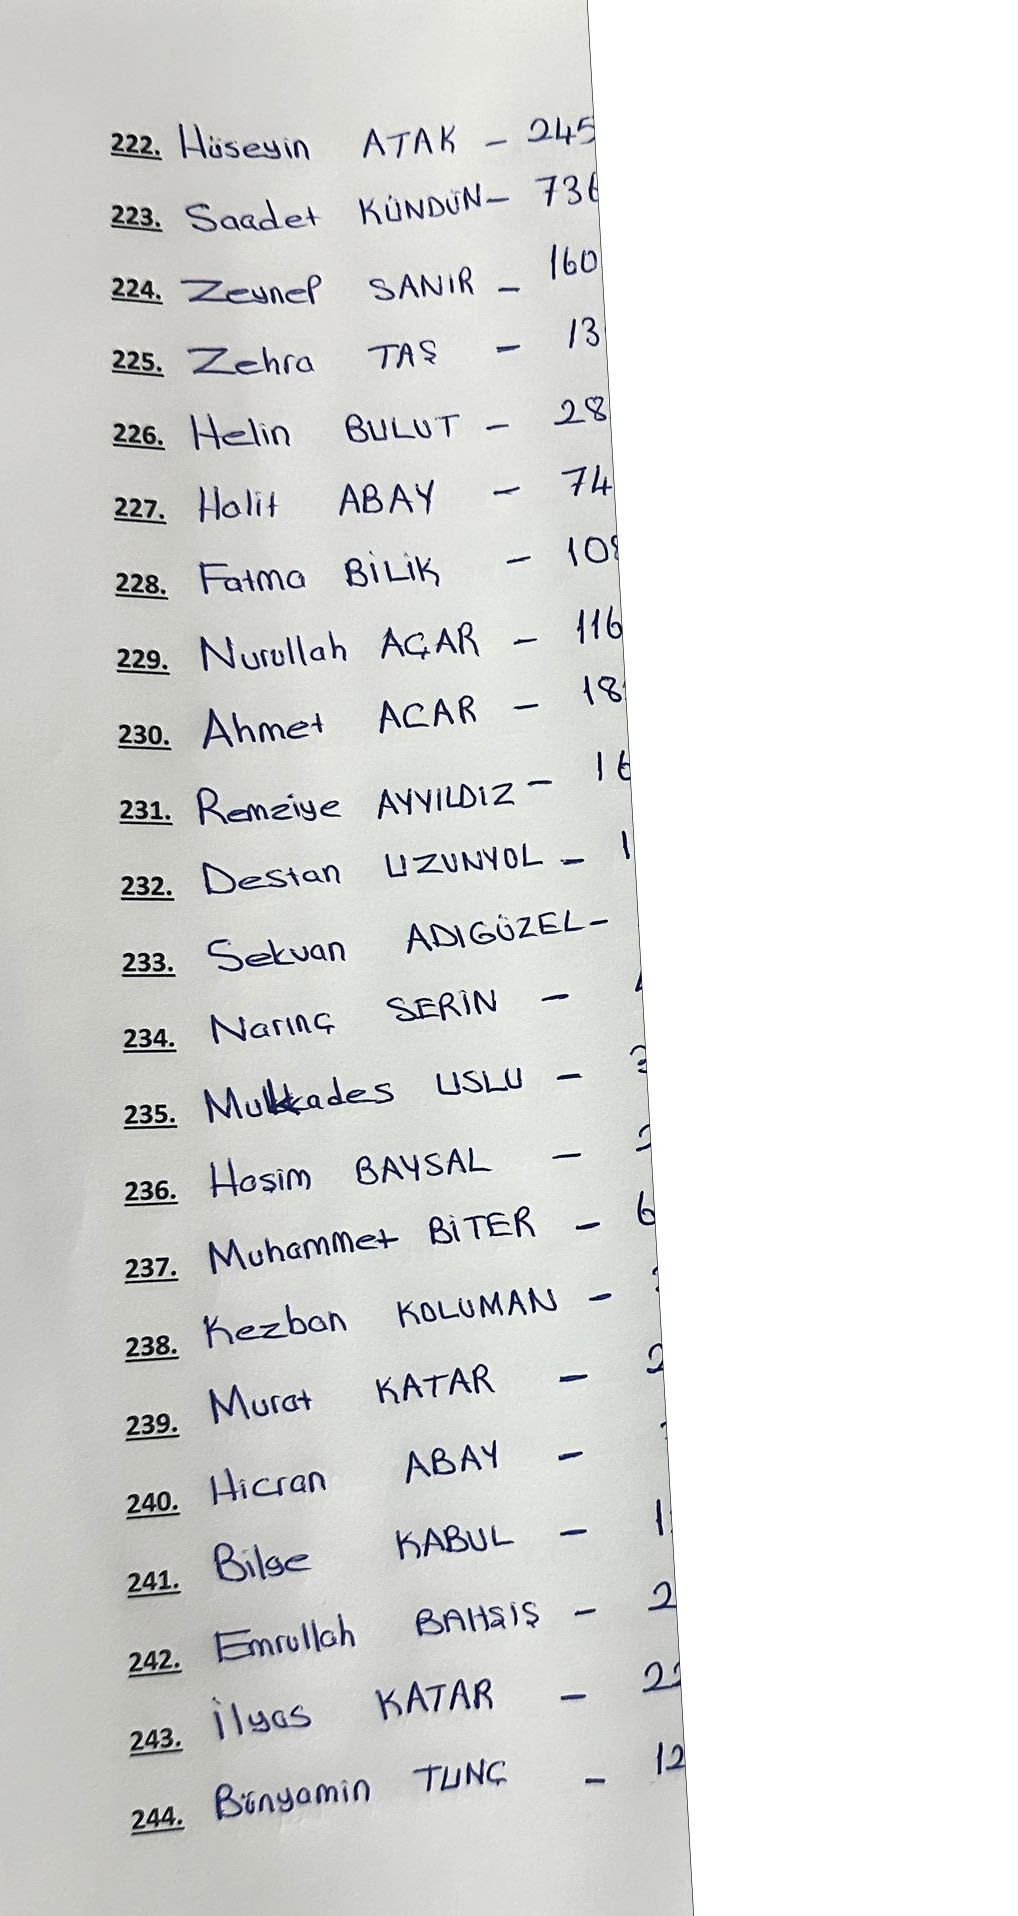 222. Hüseyin ATAK - 245
223. Saadet KÜNDÜN - 736
224. Zeynep SANIR - 160
225. Zehra TAŞ - 13
226. Helin BULUT - 28
227. Halit ABAY - 74
228. Fatma BİLİK - 108
229. Nurullah AÇAR - 116
230. Ahmet ACAR - 18
231. Remziye AYYILDIZ - 16
232. Destan UZUNYOL - 1
233. Sekvan ADIGÜZEL -
234. Narınç SERİN -
235. Mukkades USLU - 3
236. Haşim BAYSAL - 2
237. Muhammet BİTER - 6
238. Kezban KOLUMAN -
239. Murat KATAR - 2
240. Hicran ABAY -
241. Bilge KABUL - 1
242. Emrullah BAHŞİŞ - 2
243. İlyas KATAR - 22
244. Bünyamin TUNÇ - 12